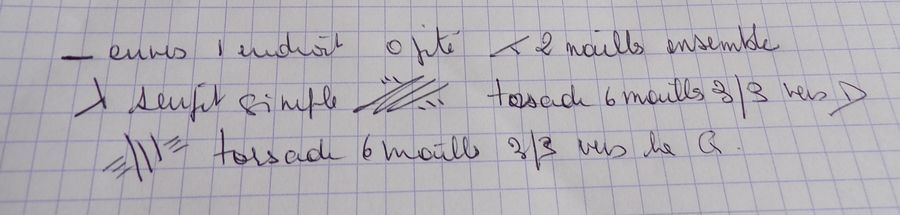 — envers | endroit O jeté < 2 mailles ensemble
λ surjet simple torsade 6 mailles 3/3 vers D
torsade 6 mailles 3/3 vers la G.